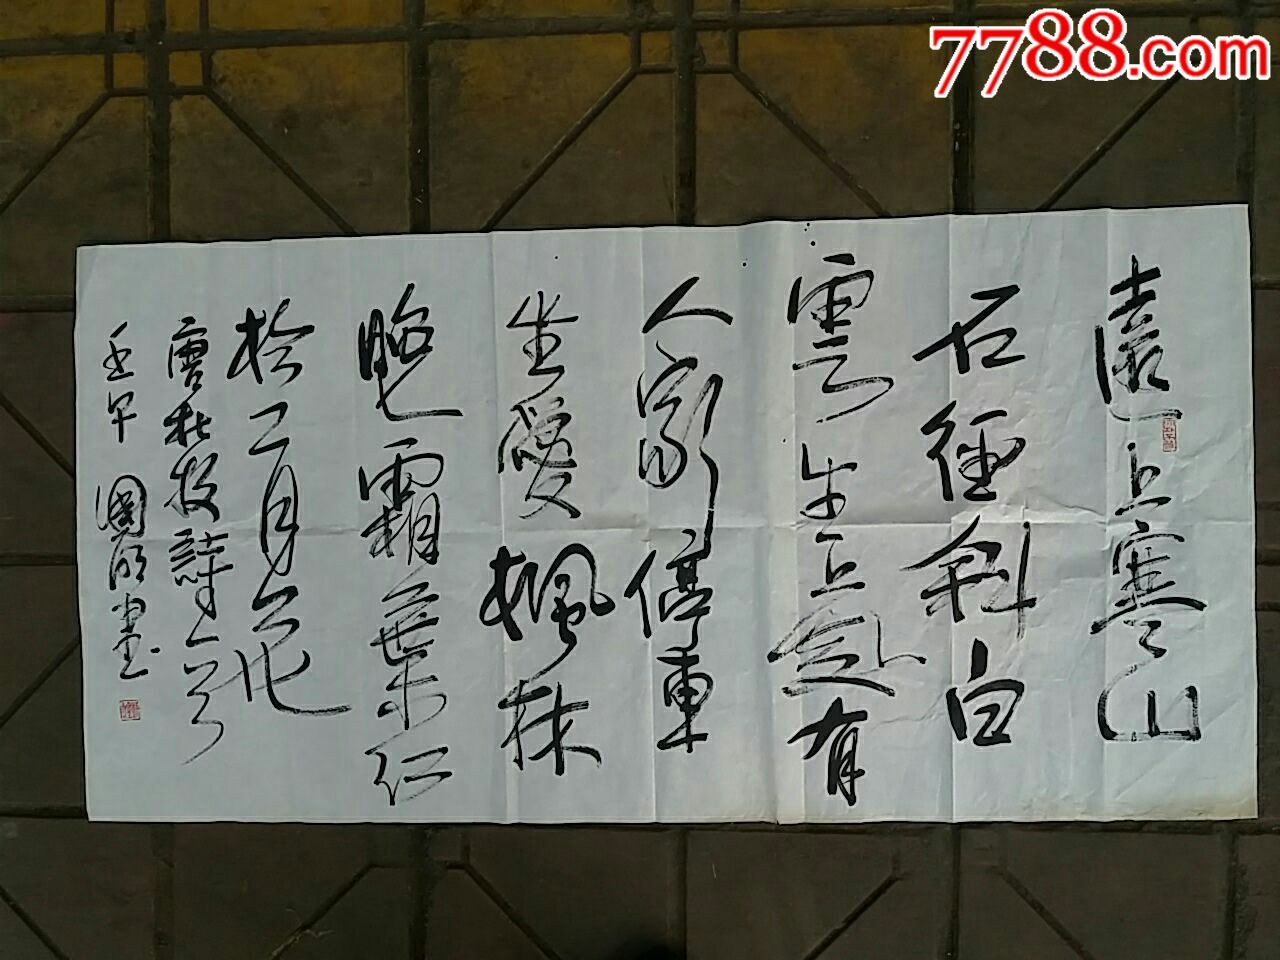 7788.com
遠上寒山
石徑斜白
雲生處有
人家停車
坐愛楓林
晚霜葉紅
於二月花
唐杜牧詩一首
壬午 國明書